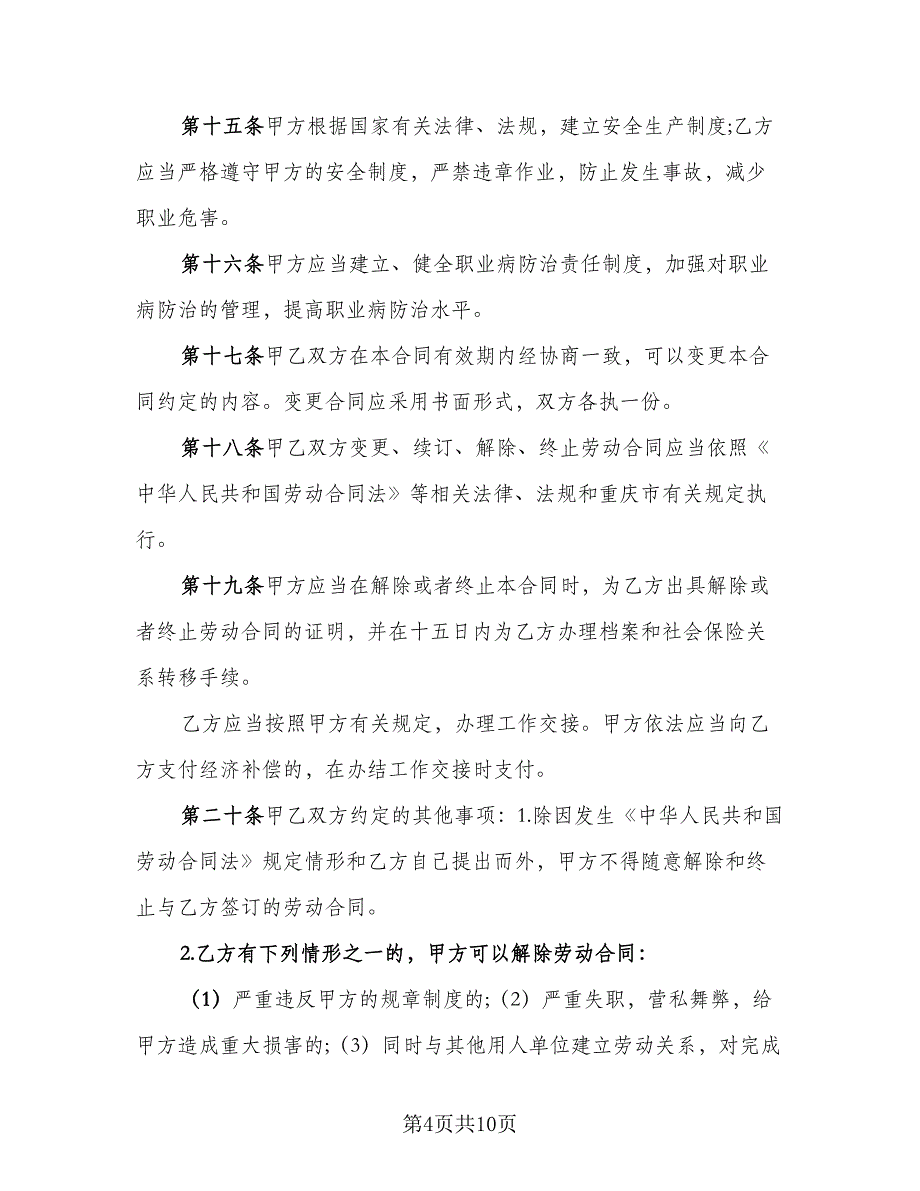 第十五条甲方根据国家有关法律、法规，建立安全生产制度;乙方
应当严格遵守甲方的安全制度，严禁违章作业，防止发生事故，减少
职业危害。
第十六条甲方应当建立、健全职业病防治责任制度，加强对职业
病防治的管理，提高职业病防治水平。
第十七条甲乙双方在本合同有效期内经协商一致，可以变更本合
同约定的内容。变更合同应采用书面形式，双方各执一份。
第十八条甲乙双方变更、续订、解除、终止劳动合同应当依照《
中华人民共和国劳动合同法》等相关法律、法规和重庆市有关规定执
行。
第十九条甲方应当在解除或者终止本合同时，为乙方出具解除或
者终止劳动合同的证明，并在十五日内为乙方办理档案和社会保险关
系转移手续。
乙方应当按照甲方有关规定，办理工作交接。甲方依法应当向乙
方支付经济补偿的，在办结工作交接时支付。
第二十条甲乙双方约定的其他事项：1.除因发生《中华人民共和国
劳动合同法》规定情形和乙方自己提出而外，甲方不得随意解除和终
止与乙方签订的劳动合同。
2.乙方有下列情形之一的，甲方可以解除劳动合同：
（1）严重违反甲方的规章制度的;（2）严重失职，营私舞弊，给
甲方造成重大损害的;（3）同时与其他用人单位建立劳动关系，对完成
第4页共10页